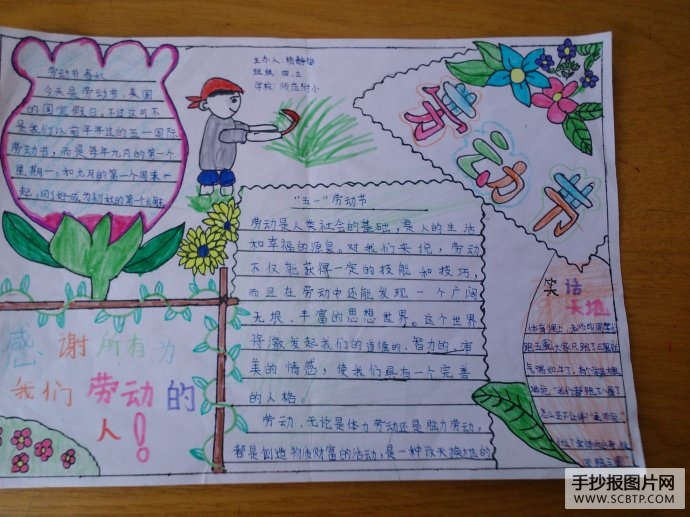 劳动节
主办人:杨静怡
班级:四.三
学校:师范附小
劳动节春秋
今天是劳动节,美国
的国定假日。不过这可不
是我们以前年年过的五一国际
劳动节,而是每年九月的第一个
星期一,和九月的第一个周末一
起,
成为初秋的第一个
"五一"劳动节
劳动是人类社会的基础,是人的生活
和幸福的源泉。对我们来说,劳动
不仅能获得一定的技能和技巧,
而且在劳动中还能发现一个广阔
无垠、丰富的思想世界。这个世界
将激发起我们的道德的、智力的、审
美的情感,使我们具有一个完善
的人格。
劳动,无论是体力劳动还是脑力劳动,
都是创造物质财富的活动,是一种改天换地的
感谢所有为
我们劳动的
人!
笑话
天地
体育课上,老师叫同学们
跑五圈,大家只跑了三圈就
气喘如牛了,
手抄报图片网
WWW.SCBTP.COM